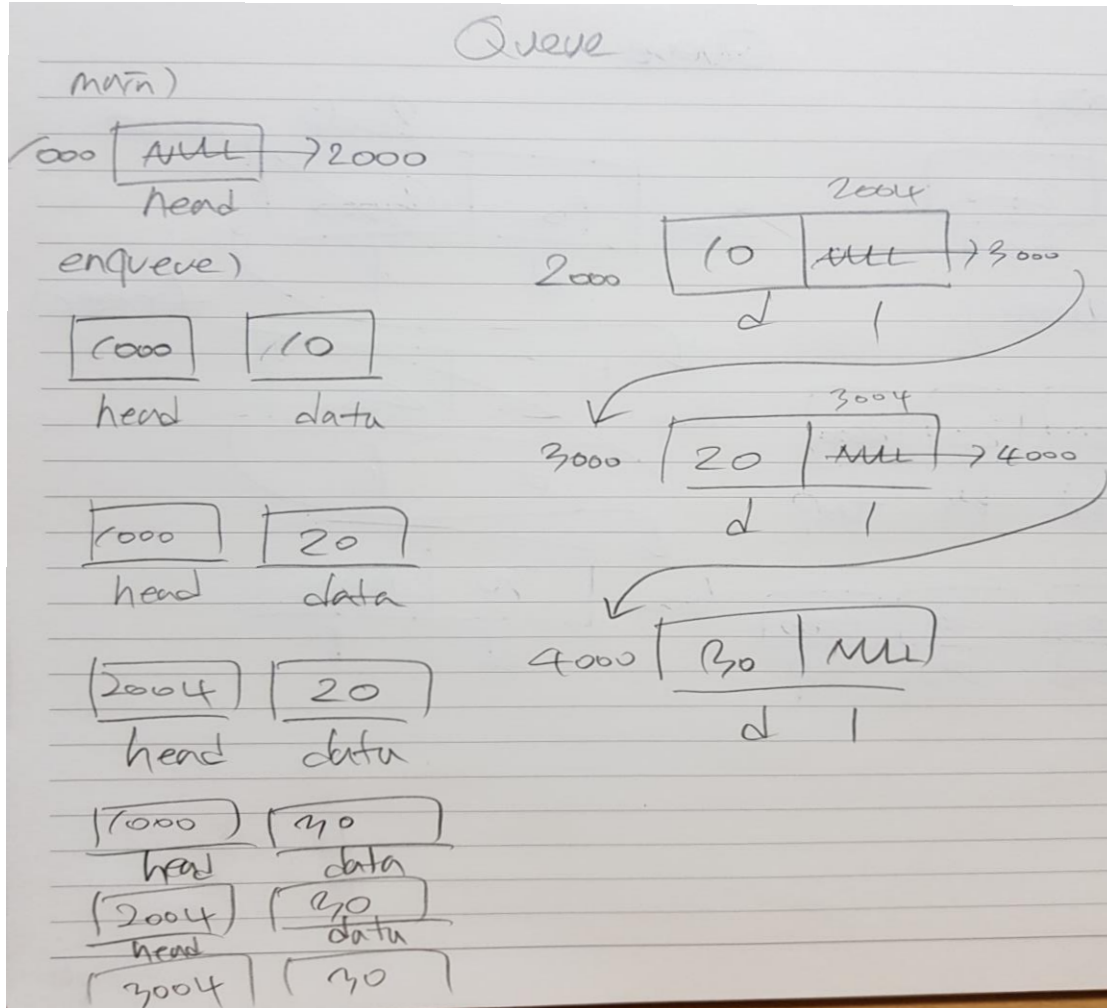 Queue
main)
1000 NULL → 2000
head
enqueue)
1000 10
head data
1000 20
head data
2004 20
head data
1000 30
head data
2004 30
head data
3004 30
2004
2000 10 NULL → 3000
d l
3004
3000 20 NULL → 4000
d l
4000 30 NULL
d l